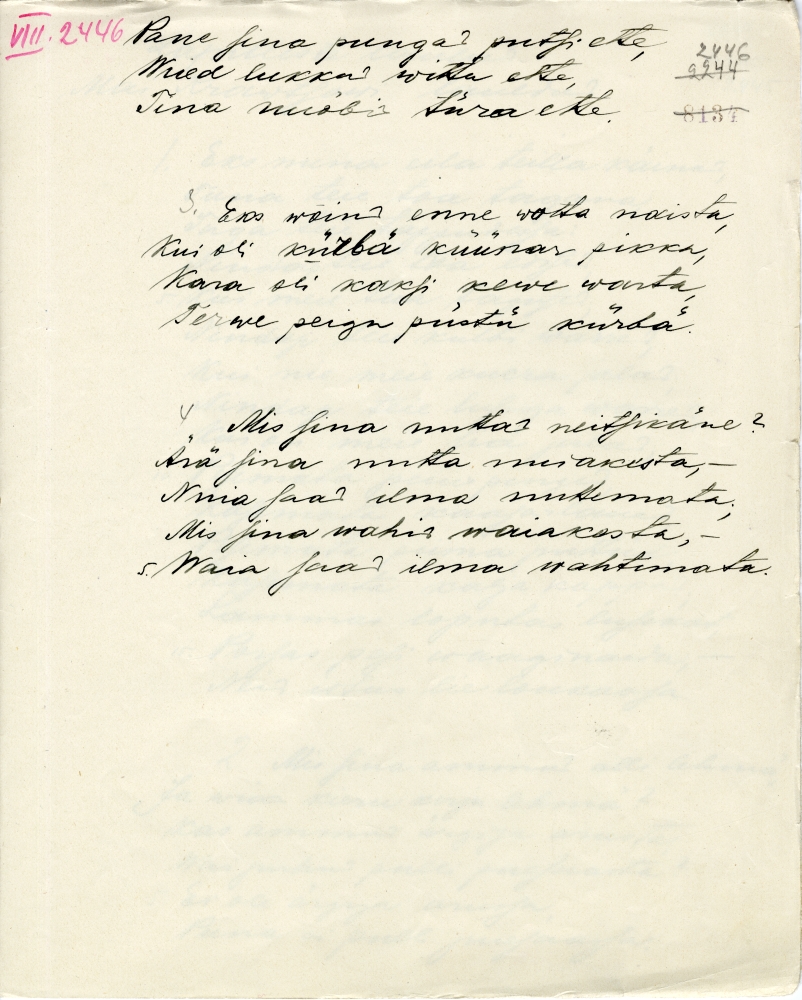 VIII. 2446
Pane sina pungad putsi ette,
Wiied lukkud wittu ette,
Tina nuobid türa ette.
2446
2244
8134
3. Eks wõind enne wotta naista,
Kui oli kürbä küünar pikka,
Kara oli kaksi kewe warta,
Terwe peigu püstü kürbä.
4 Mis sina nuttad neitsikäne?
Ärä sina nutta nuiakesta,—
Nuia saad ilma nuttemata;
Mis sina wahid waiakesta,—
5. Waia saad ilma wahtimata.